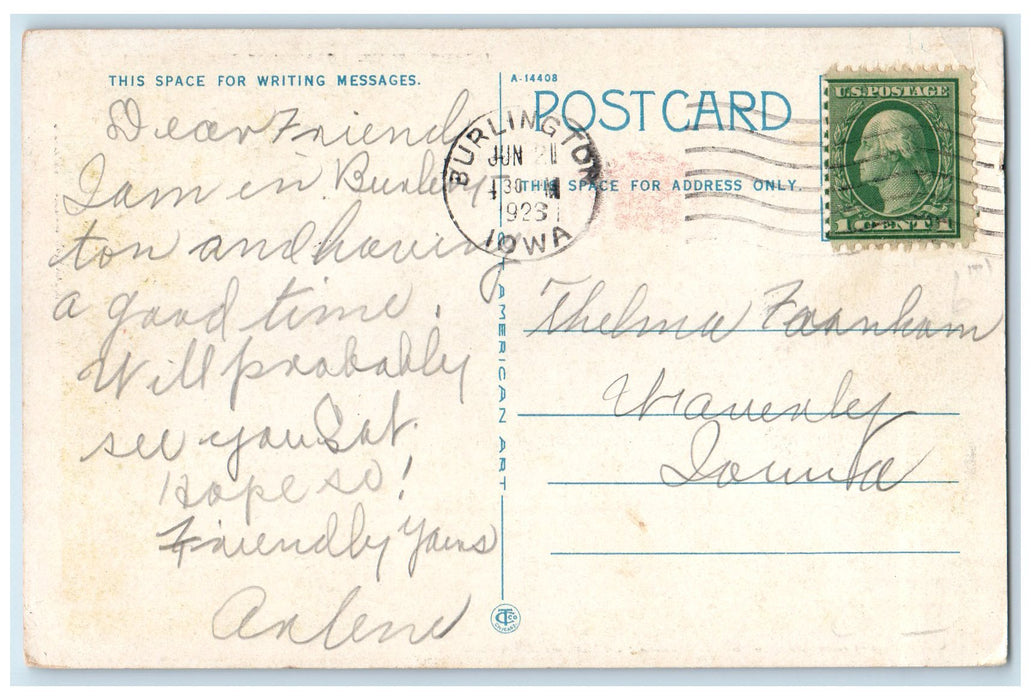 THIS SPACE FOR WRITING MESSAGES.
Dear Friend
I am in Burling
ton and having
a good time.
Will probably
see you Sat.
Hope so!
Friendly Yours
Arlene
A-14408
POST CARD
THIS SPACE FOR ADDRESS ONLY
BURLINGTON
JUN 21
30 M
192
IOWA
U.S. POSTAGE
1 CENT 1
AMERICAN ART
Thelma Farnham
Waverley
Iowa
CT Co
CHICAGO